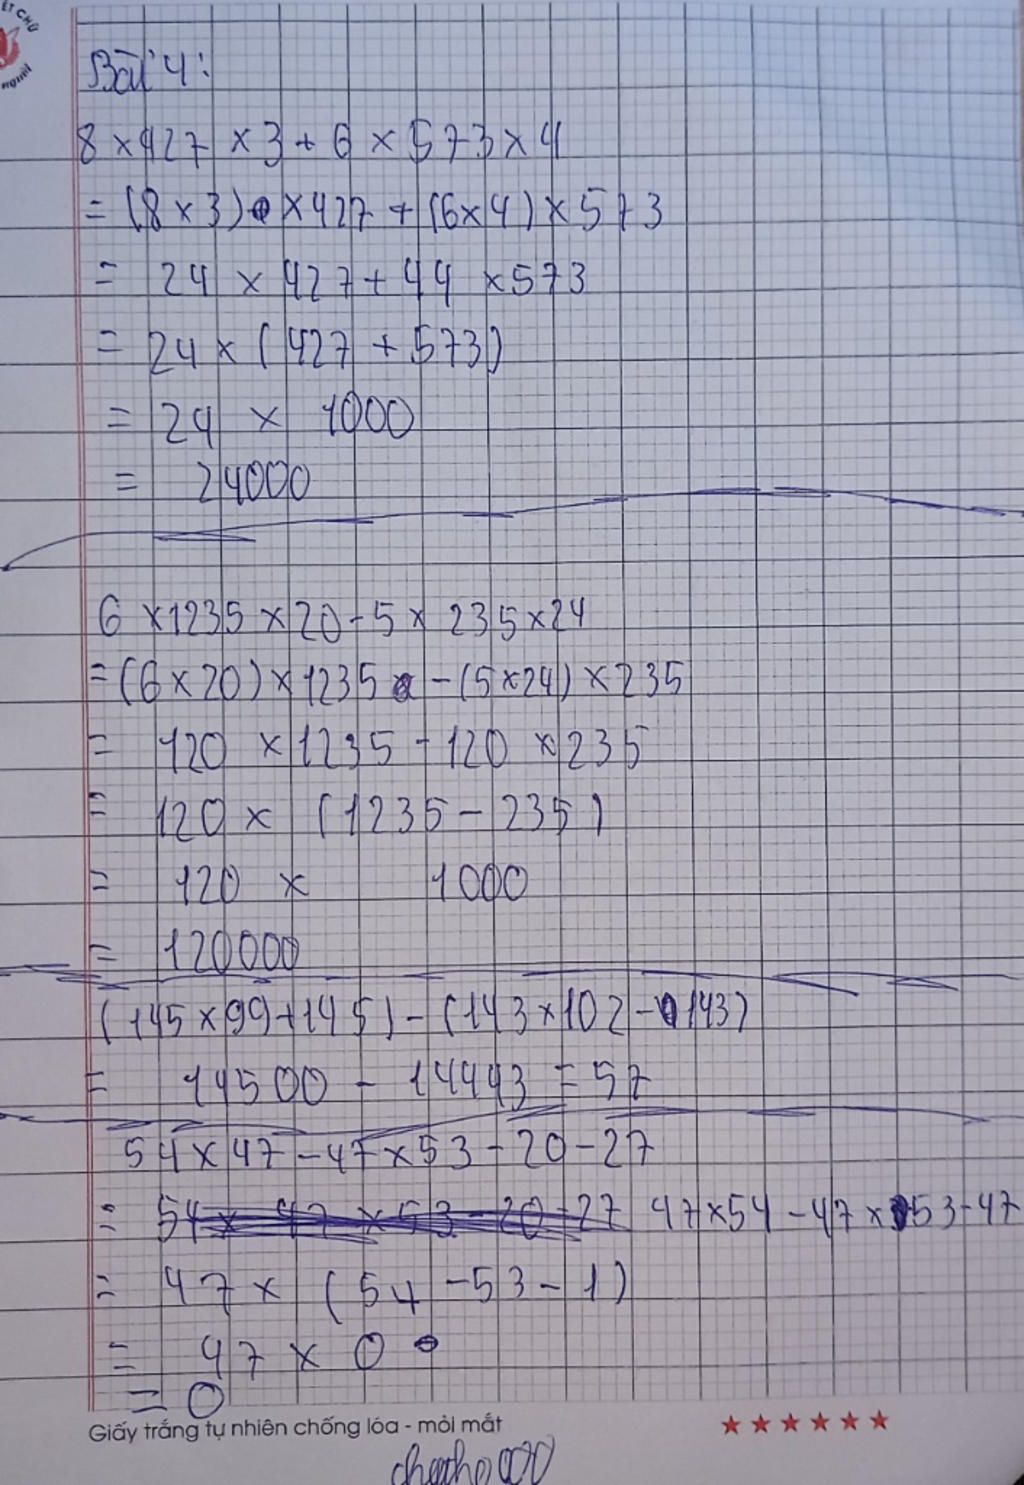 ẾT CHỮ
người
Bài 4:
8 × 427 × 3 + 6 × 573 × 4
= (8 × 3) × 427 + (6 × 4) × 573
= 24 × 427 + 44 × 573
= 24 × (427 + 573)
= 24 × 1000
= 24000
6 × 1235 × 20 - 5 × 235 × 24
= (6 × 20) × 1235 - (5 × 24) × 235
= 120 × 1235 - 120 × 235
= 120 × (1235 - 235)
= 120 × 1000
= 120000
(145 × 99 + 145) - (143 × 102 - 143)
= 14500 - 14443 = 57
54 × 47 - 47 × 53 - 20 - 27
= 54 × 47 × 53 - 20 - 27 47 × 54 - 47 × 53 - 47
= 47 × (54 - 53 - 1)
= 47 × 0
= 0
Giấy trắng tự nhiên chống lóa - mỏi mắt